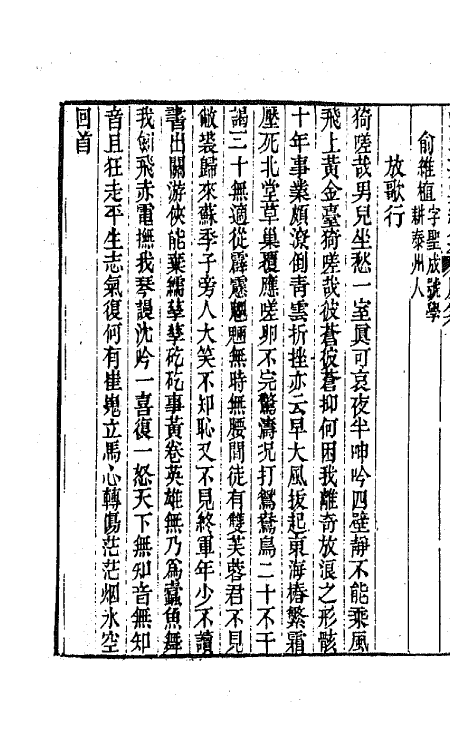 俞維植字聖成號學
耕泰州人
放歌行
猗嗟哉男兒坐愁一室眞可哀夜半呻吟四壁靜不能乘風
飛上黃金臺猗嗟哉彼蒼彼蒼抑何因我離奇放浪之形骸
十年事業頗潦倒靑雲折挫亦云早大風拔起東海椿繁霜
壓死北堂草巢覆應嗟卵不完驚濤況打鴛鴦鳥二十不干
謁三十無適從霹靂魍魎無時無腰間徒有雙芙蓉君不見
敝裘歸來蘇季子旁人大笑不知恥又不見終軍年少不讀
書出關游俠能棄繻孳孳矻矻事黃卷英雄無乃爲蠹魚舞
我劍飛赤電撫我琴謾沈吟一喜復一怒天下無知音無知
音且狂走平生志氣復何有崔嵬立馬心轉傷茫茫烟水空
回首